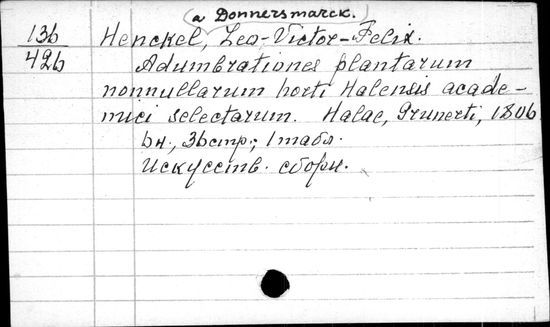 (a Donnersmarck.)
136 Henckel, Leo-Victor-Felix.
426 Adumbrationes plantarum
nonnullarum horti Halensis acade-
mici selectarum. Halae, Grunerti, 1806
36 стр.; 1 табл.
Искусств. сборн.